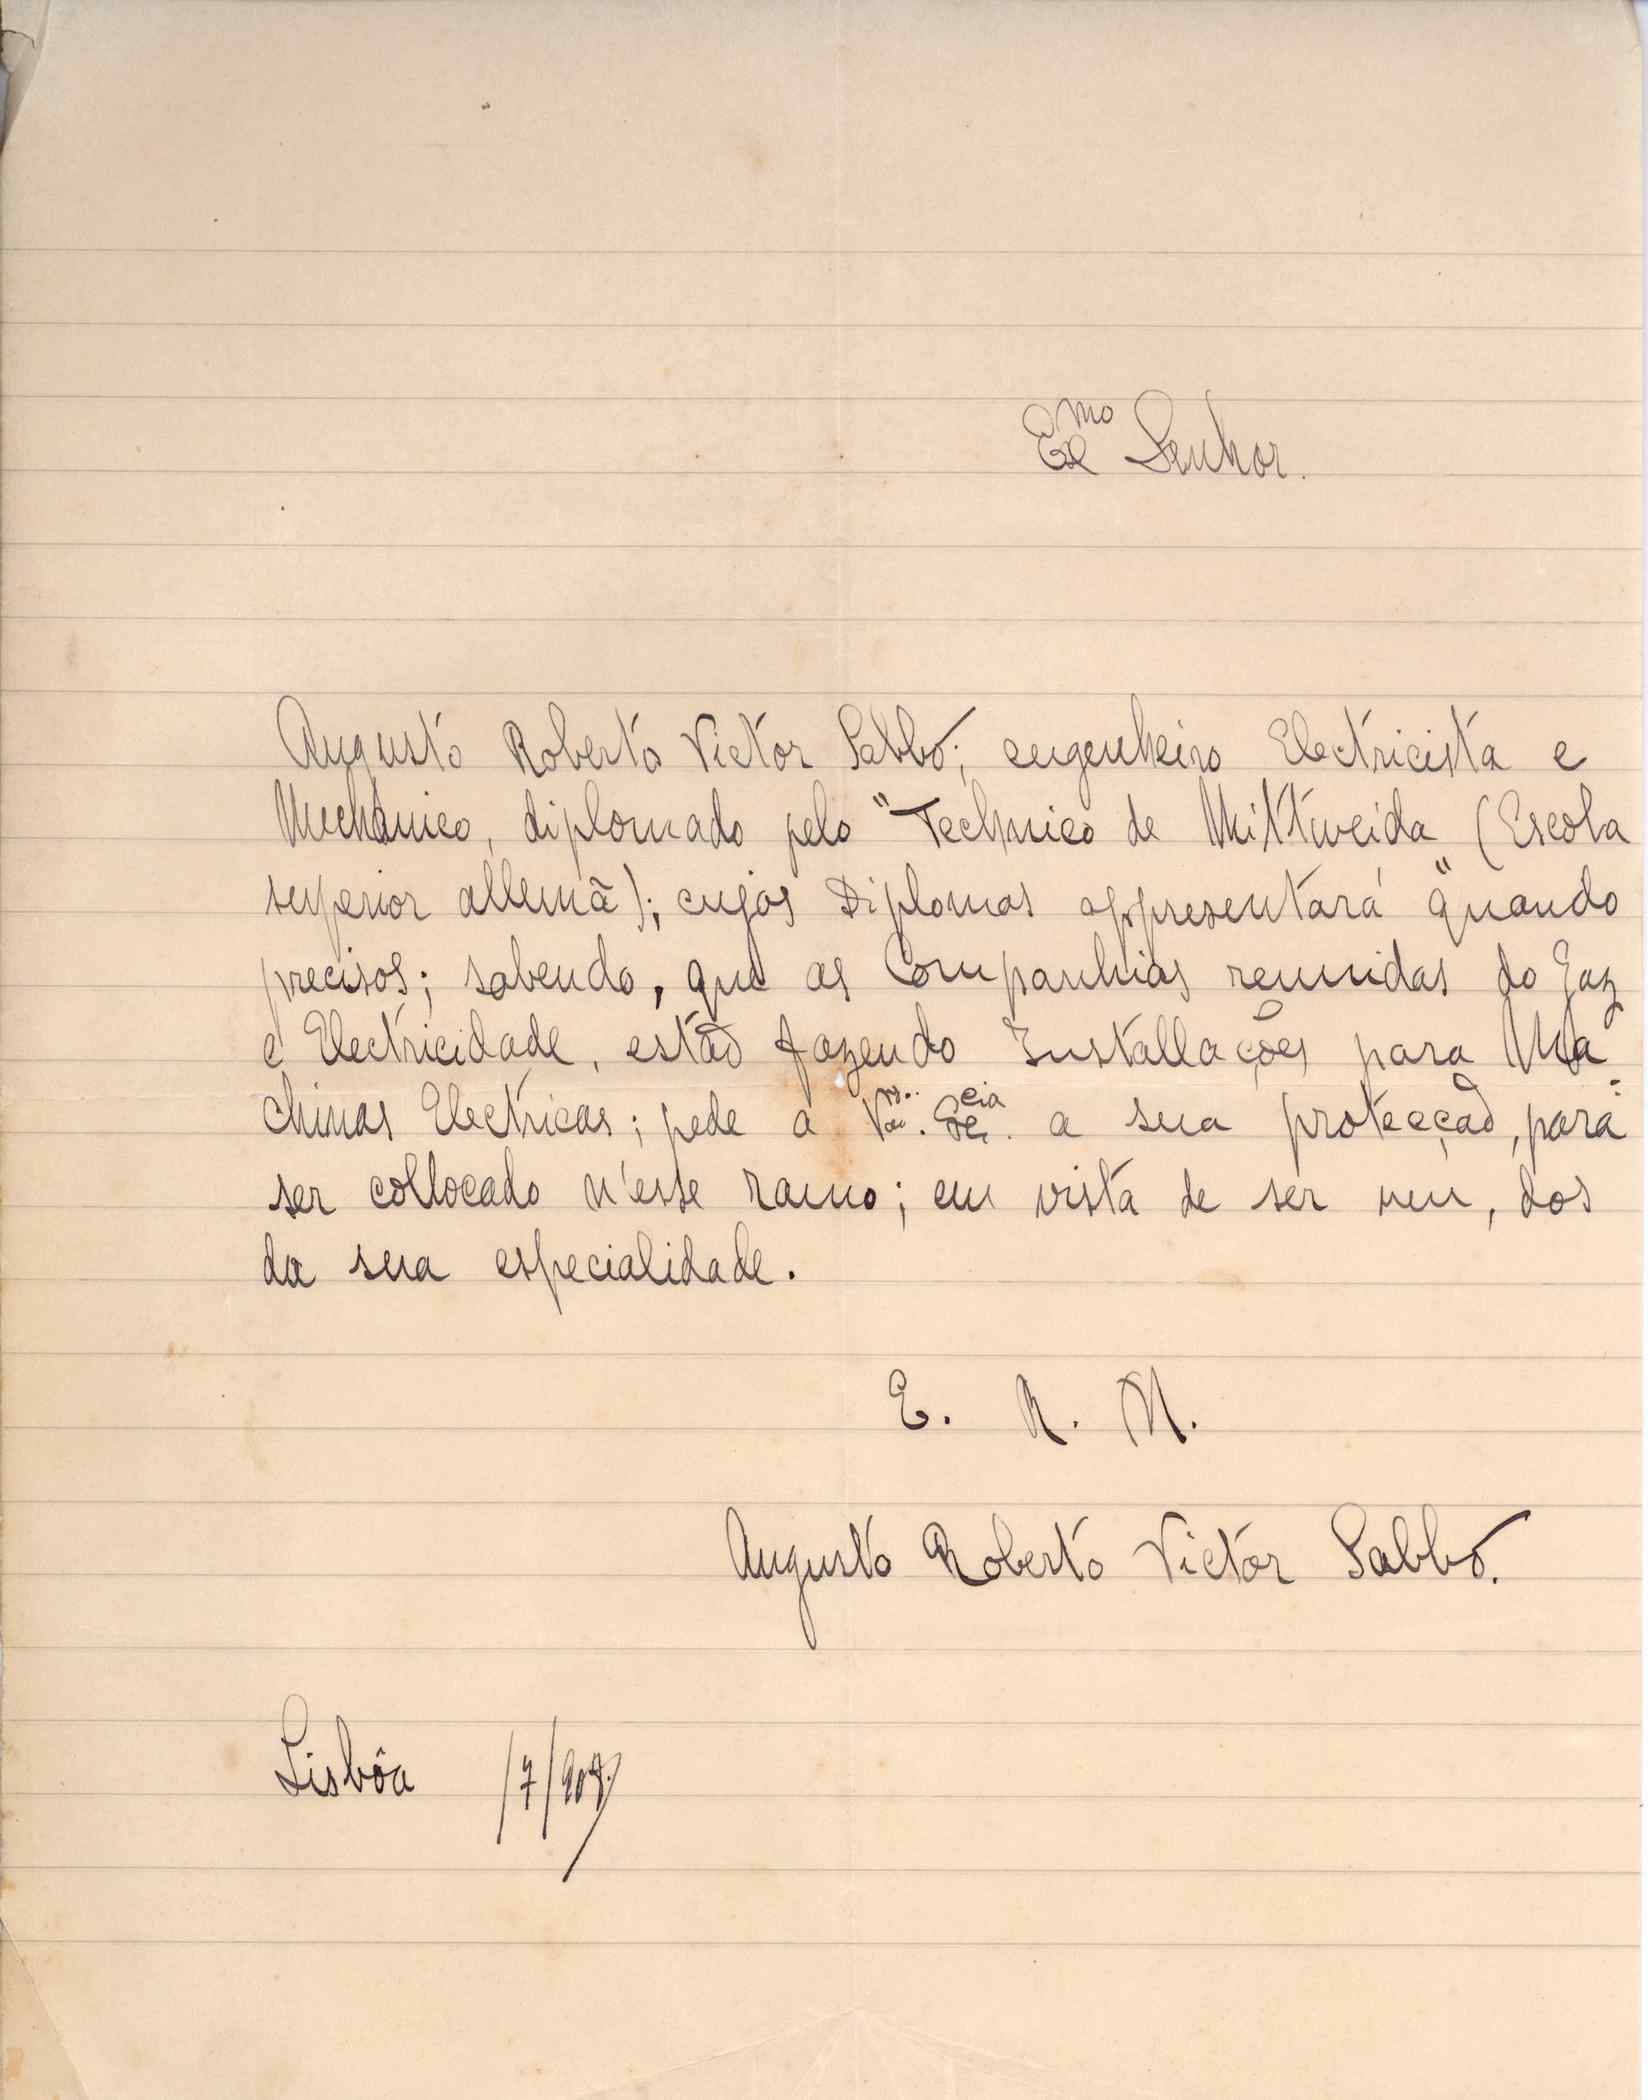 Exmo Senhor.
Augusto Roberto Victor Sabbo; engenheiro Electricista e
Mechanico, diplomado pelo "Technico de Mittweida" (Escola
superior allemã); cujos Diplomas appresentará quando
precisos; sabendo, que as Companhias reunidas do Gaz
e Electricidade, estão fazendo Installações para Ma-
chinas Electricas; pede a Vossa. Excia. a sua protecção, para
ser collocado n'esse ramo; em vista de ser um, dos
da sua especialidade.
E. R. M.
Augusto Roberto Victor Sabbo.
Lisbôa /7/909